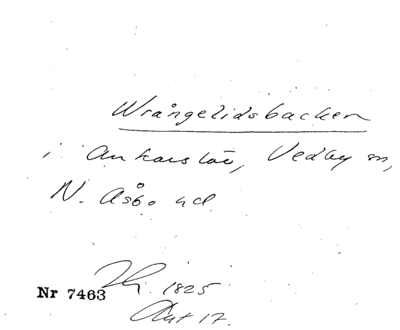 Wrångelidsbacken
i Ankarslöv, Vedby sn,
N. Åsbo hd.
1825
Nr 7463
Akt 17.